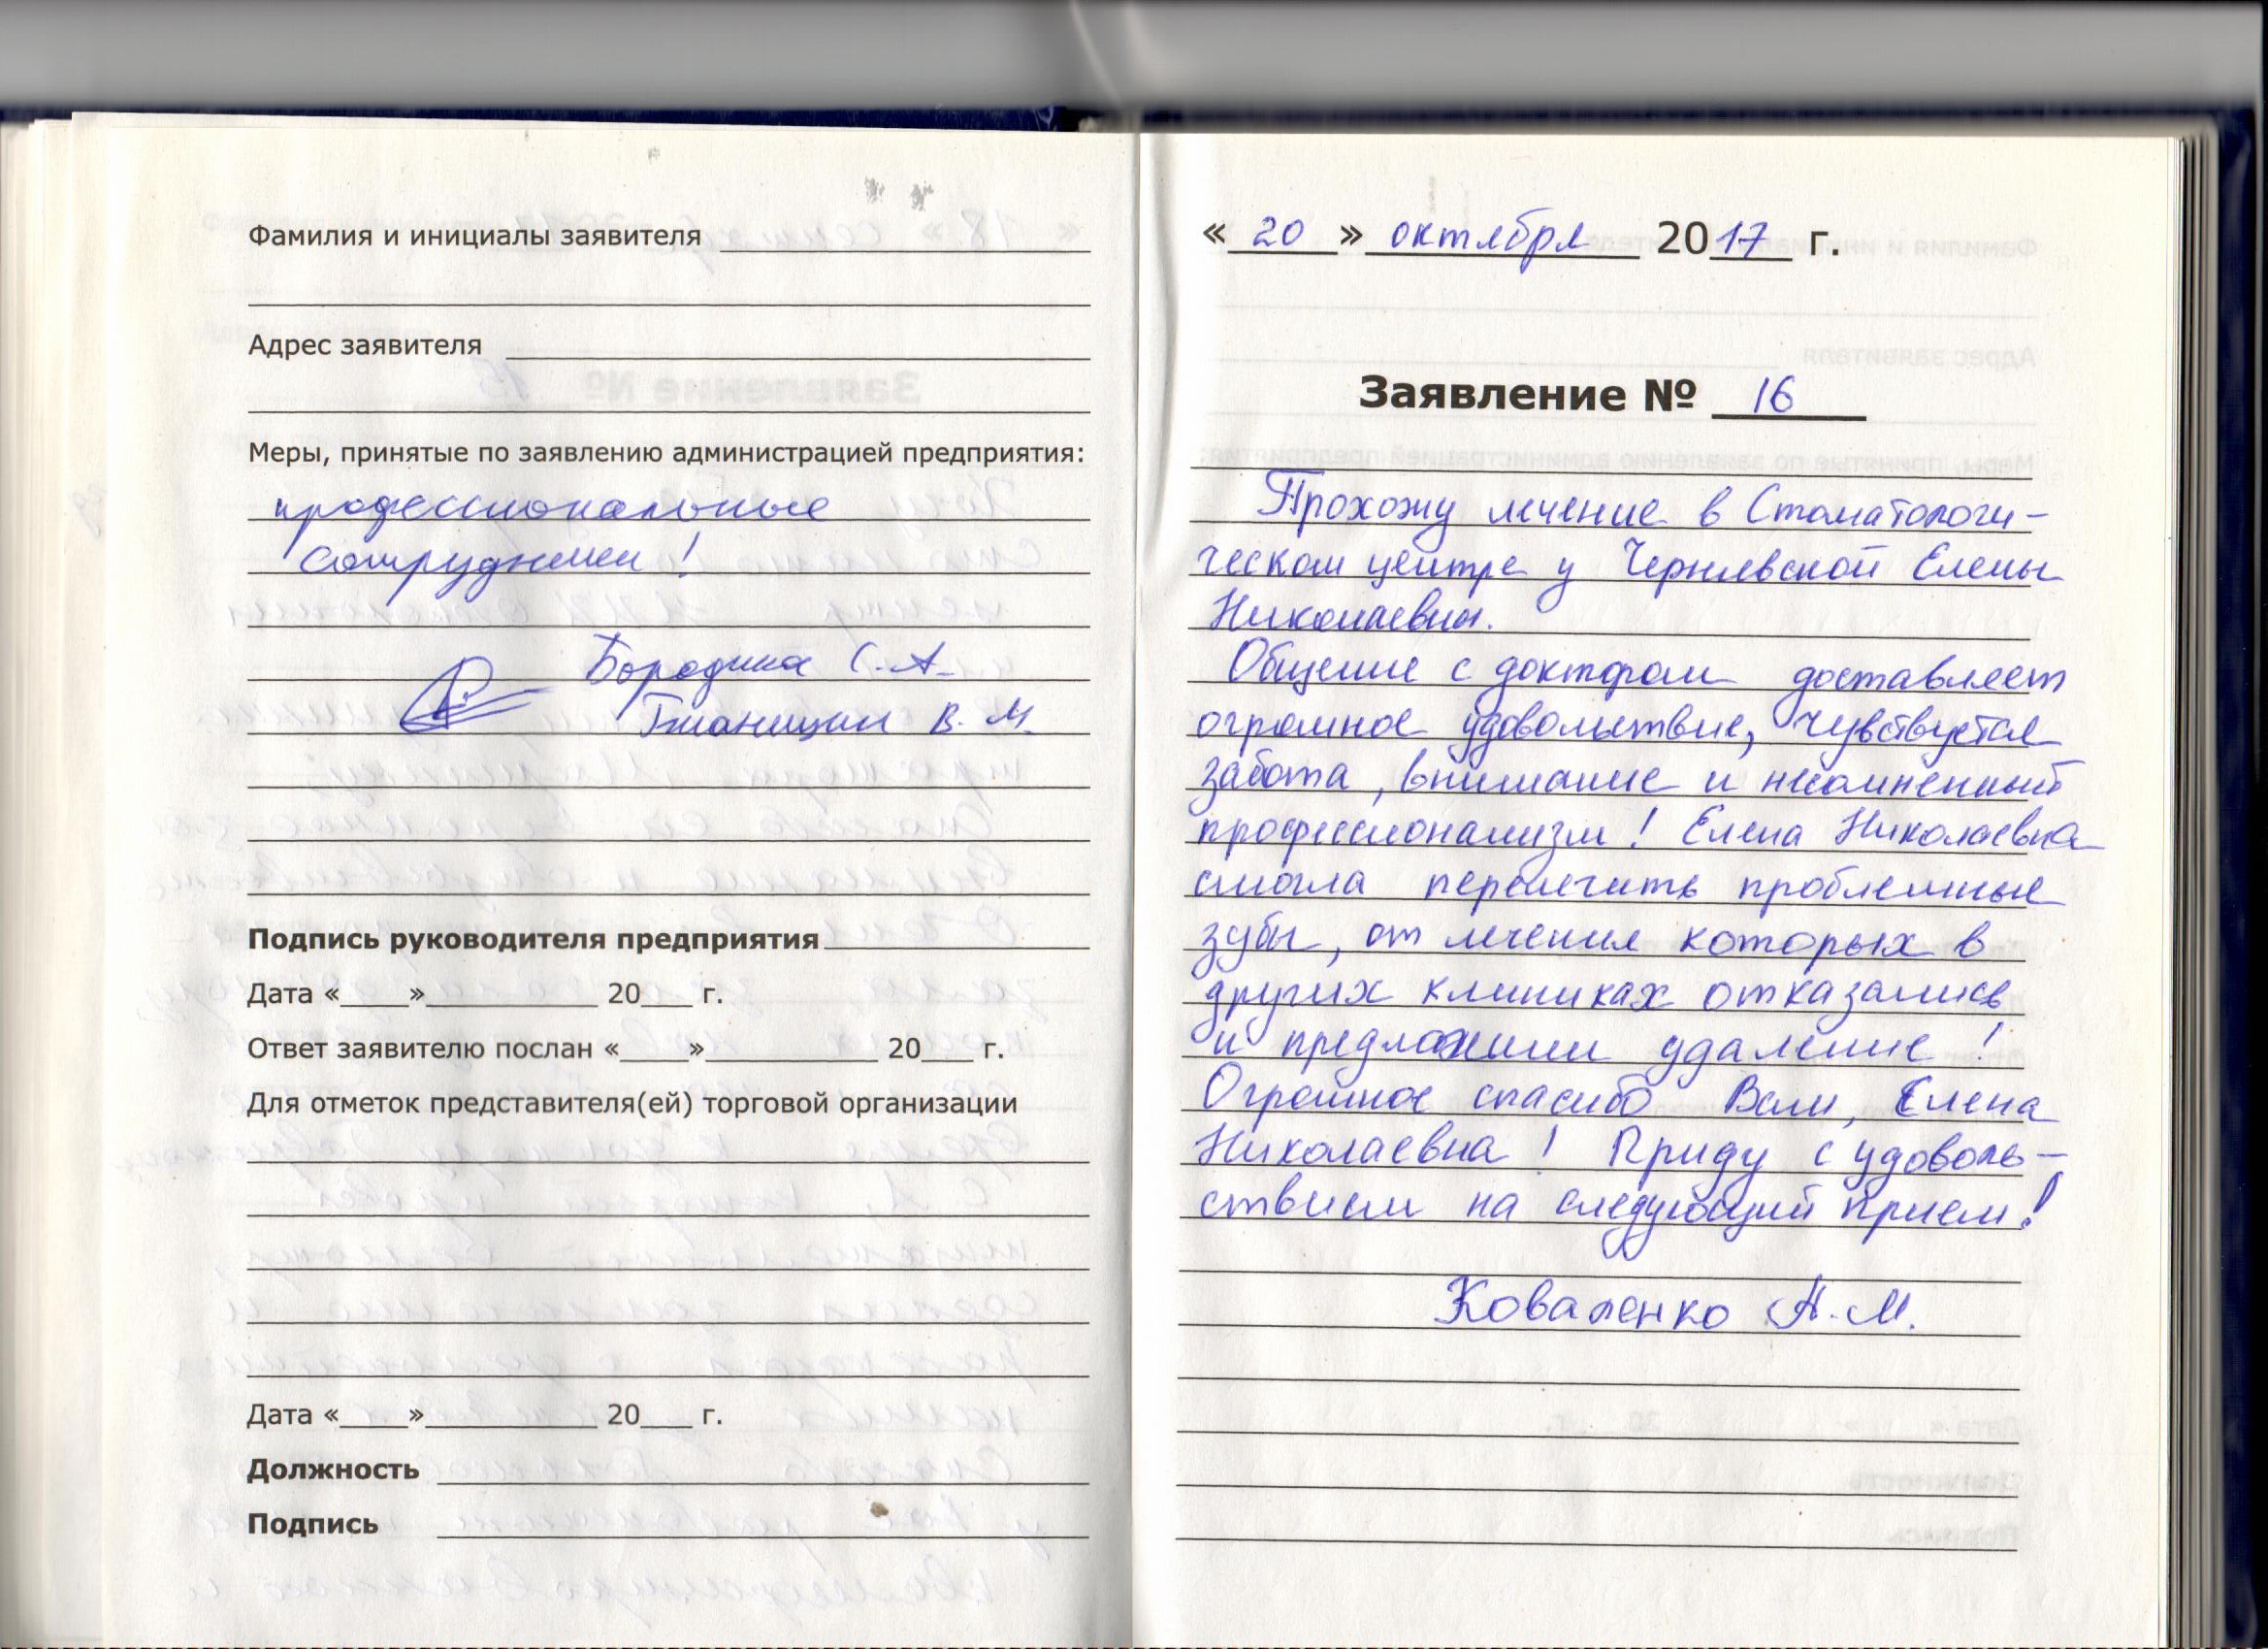 Фамилия и инициалы заявителя
Адрес заявителя
Меры, принятые по заявлению администрацией предприятия:
профессиональные
сотрудники!
Бородина С.А.
В.М.
Подпись руководителя предприятия
Дата «____»__________ 20___ г.
Ответ заявителю послан «____»__________ 20___ г.
Для отметок представителя(ей) торговой организации
Дата «____»__________ 20___ г.
Должность
Подпись
« 20 » октября 2017 г.
Заявление № 16
Прохожу лечение в Стоматологи-
ческом центре у Чернявской Елены
Николаевны.
Общение с доктором доставляет
огромное удовольствие, чувствуется
забота, внимание и несомненный
профессионализм! Елена Николаевна
смогла перелечить проблемные
зубы, от лечения которых в
других клиниках отказались
и предложили удаление!
Огромное спасибо Вам, Елена
Николаевна! Приду с удоволь-
ствием на следующий прием!
Коваленко А.М.